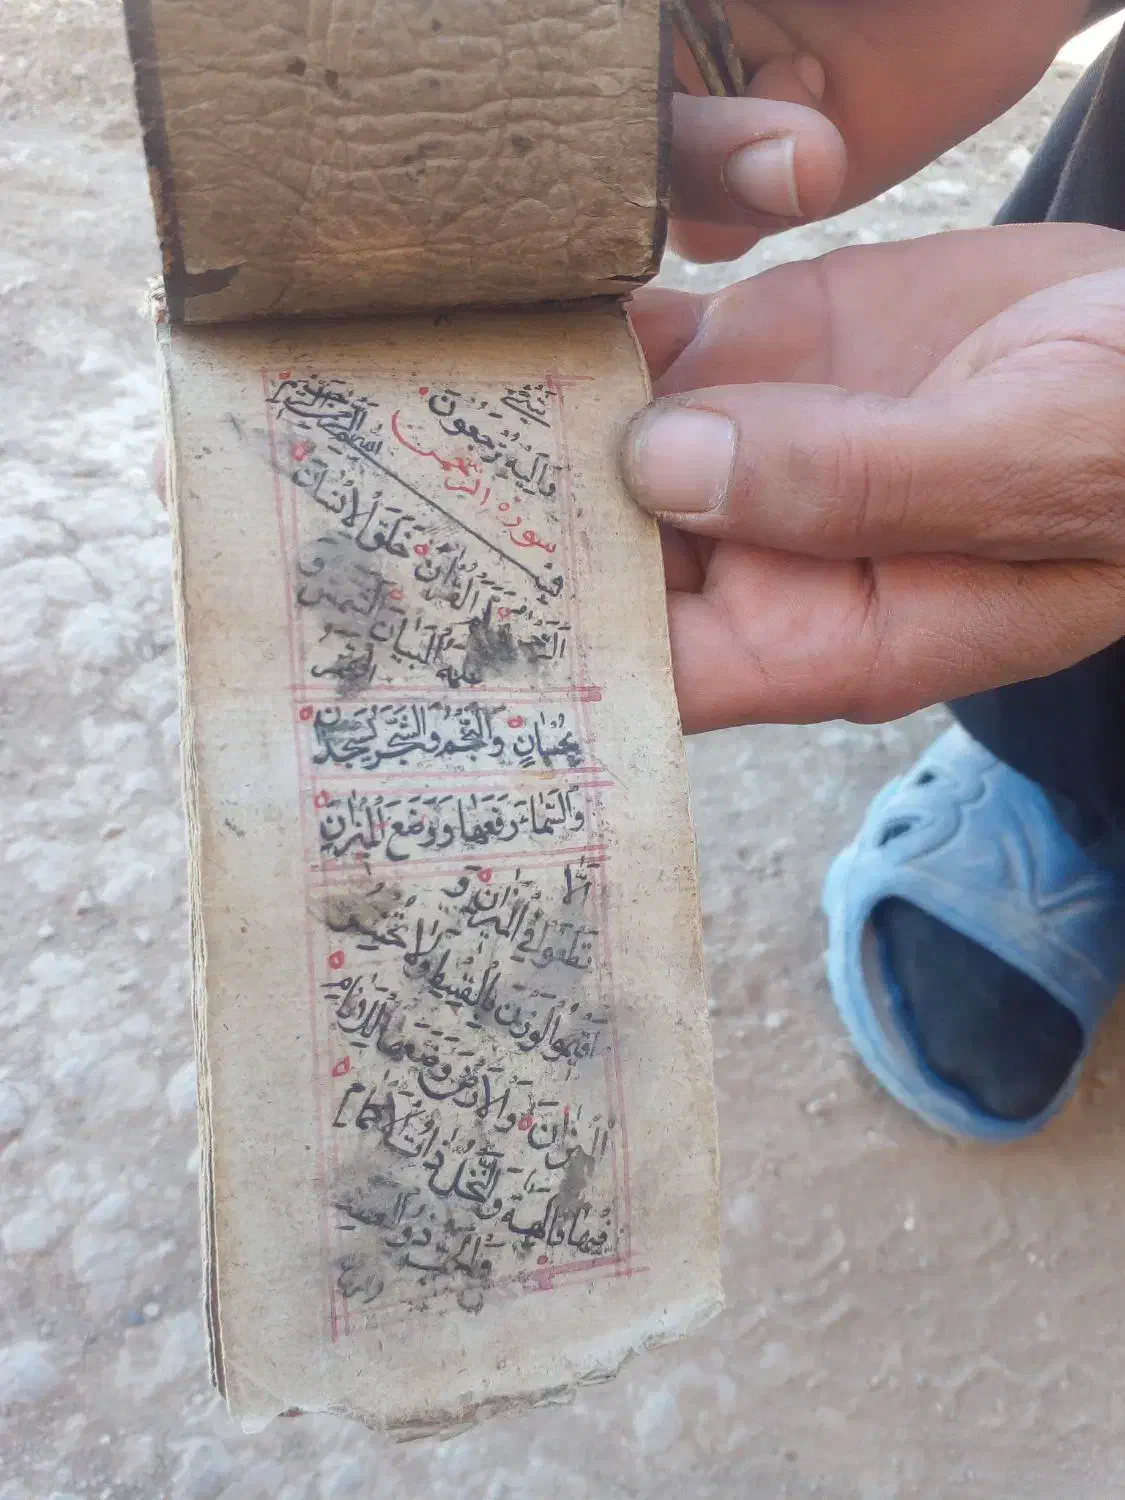 شيء
وَاِلَيْهِ تُرْجَعُونَ
سورة الرحمن
بسم الله الرحمن الرحيم
اَلرَّحْمٰنُ عَلَّمَ الْقُرْاٰنَ خَلَقَ الْاِنْسَانَ
عَلَّمَهُ الْبَيَانَ اَلشَّمْسُ وَ
الْقَمَرُ
بِحُسْبَانٍ وَالنَّجْمُ وَالشَّجَرُ يَسْجُدَانِ
وَالسَّمَاءَ رَفَعَهَا وَوَضَعَ الْمِيزَانَ
اَلَّا
تَطْغَوْا فِي الْمِيزَانِ وَ
اَقِيمُوا الْوَزْنَ بِالْقِسْطِ وَلَا تُخْسِرُوا
الْمِيزَانَ وَالْاَرْضَ وَضَعَهَا لِلْاَنَامِ
فِيهَا فَاكِهَةٌ وَالنَّخْلُ ذَاتُ الْاَكْمَامِ
وَالْحَبُّ ذُو الْعَصْفِ